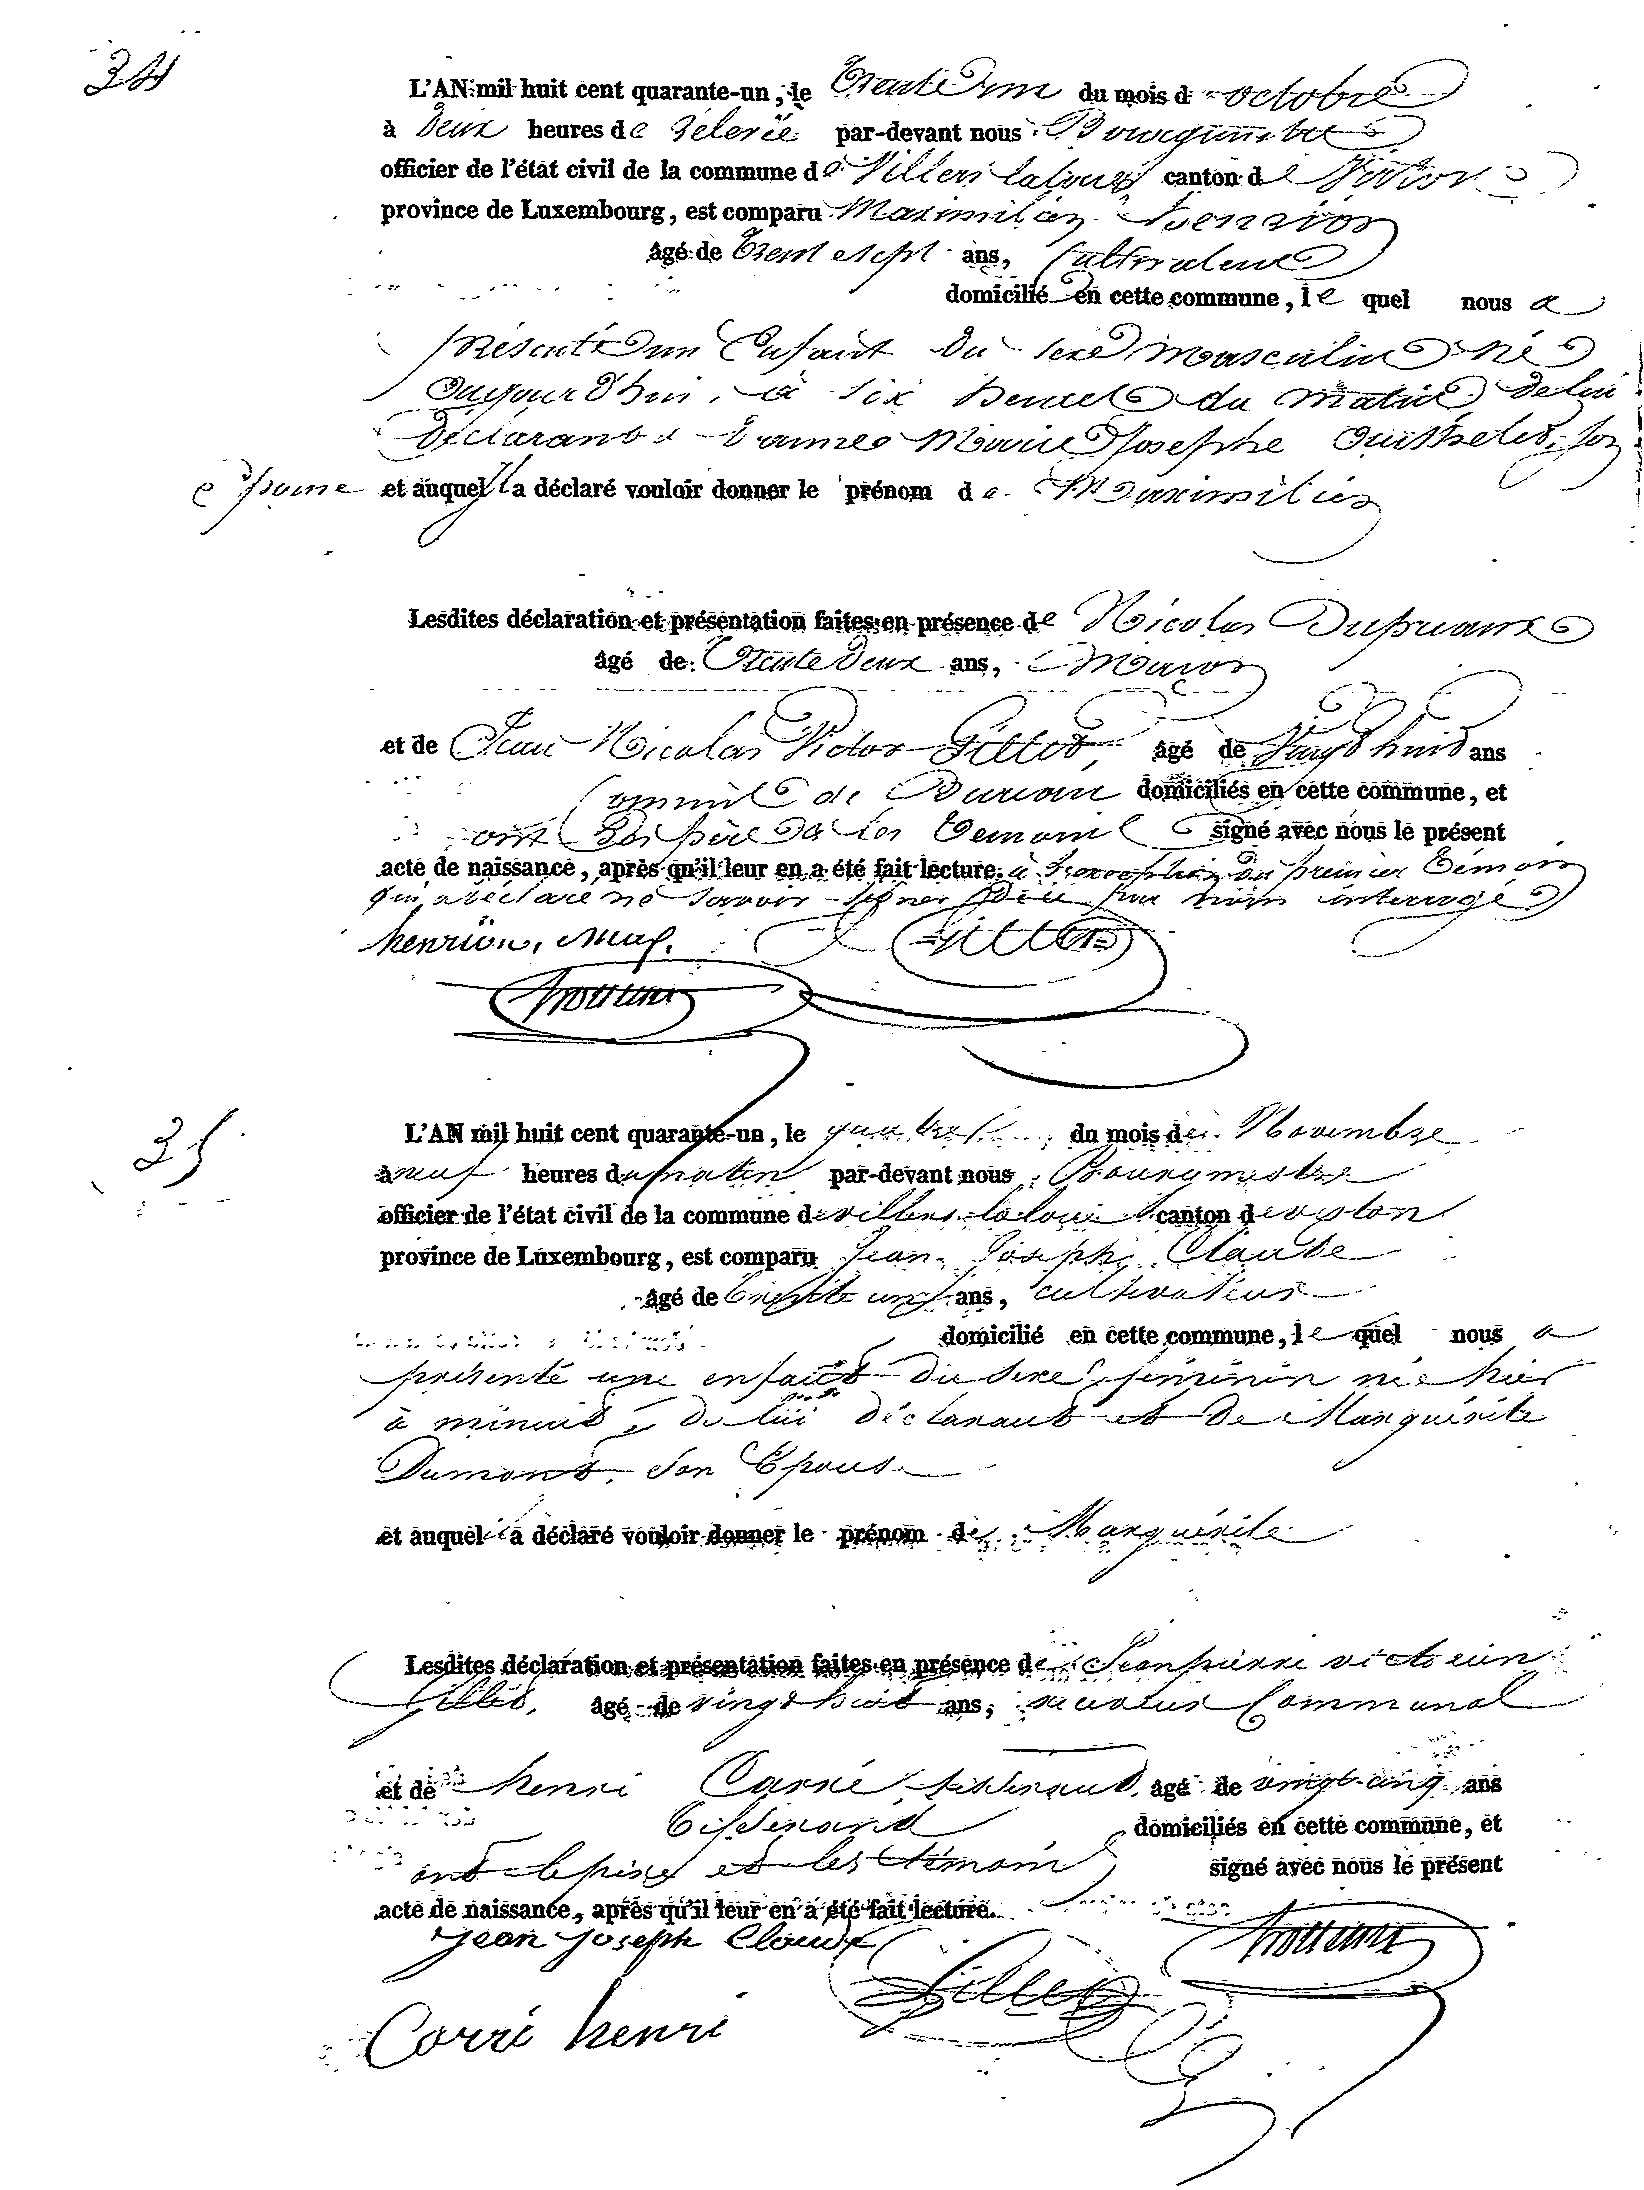 34
L'AN mil huit cent quarante-un, le Trente un du mois d'octobre
à Deux heures de Rélevée par-devant nous Bourgmestre
officier de l'état civil de la commune de Villers laloue canton de Virton
province de Luxembourg, est comparu Maximilien henrion
âgé de Trent sept ans, Cultivateur
domicilié en cette commune, le quel nous a
présenté un Enfant du sexe masculin né
aujourd'hui, à six heures du matin de lui
déclarant & Marie Josephe son
épouse et auquel il a déclaré vouloir donner le prénom de Maximilien
Lesdites déclaration et présentation faites en présence de Nicolas
âgé de Trente deux ans, Maçon
et de Jean Nicolas Victor Gillet, âgé de Vingt huit ans
Commis de Bureau domiciliés en cette commune, et
ont les père & les Temoins signé avec nous le présent
acte de naissance, après qu'il leur en a été fait lecture. à l'exception du premier Témoin
qui a déclaré ne savoir signer de ce par nous interrogé
henrion, Max. Gillet
35
L'AN mil huit cent quarante-un, le quatre du mois de Novembre
à neuf heures du matin par-devant nous Bourgmestre
officier de l'état civil de la commune de villers laloue canton de virton
province de Luxembourg, est comparu Jean Joseph Claude
âgé de trente un ans, cultivateur
domicilié en cette commune, le quel nous a
présenté une enfant du sexe féminin née hier
à minuit de lui déclarant et de Marguérite
Dumont, son Epouse
et auquel il a déclaré vouloir donner le prénom de Marguérite
Lesdites déclaration et présentation faites en présence de Jean pierre victorin
Gillet, âgé de vingt huit ans, receveur Communal
et de henri Carré, tisserand, âgé de vingt-cinq ans
tisserand domiciliés en cette commune, et
ont le père et les témoins signé avec nous le présent
acte de naissance, après qu'il leur en a été fait lecture.
jean joseph Cloude
Gillet
Corré henri